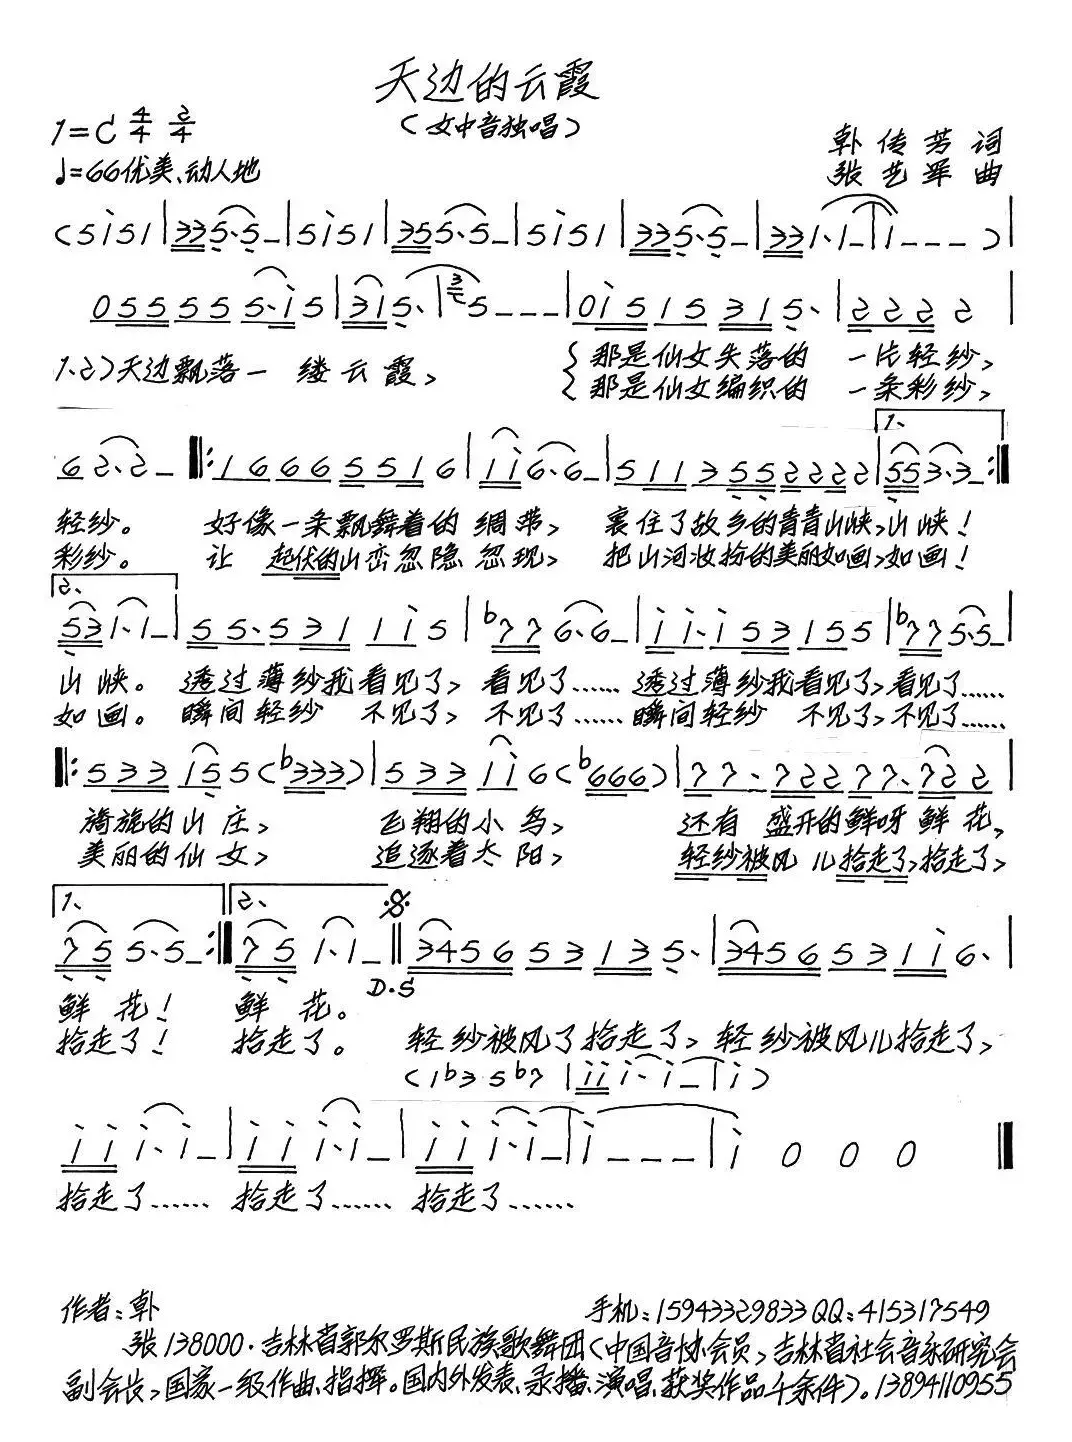 天边的云霞
（女中音独唱）
1=C 4/4 2/4
♩=66优美、动人地
韩传芳 词
张艺军 曲
(5i51|335·5_|5i51|3555·5_|5i51|335·5_|331·1_|1___)|
055555·i5|315·|5___|0i515315·|2222|
1.2)天边飘落一缕云霞，
那是仙女失落的一片轻纱，
那是仙女编织的一条彩纱，
1.
62·2_‖:16665516|ii6·6_|5113552222|553·3_:‖
轻纱。 好像一条飘舞着的绸带， 裹住了故乡的青青山峡，山峡！
彩纱。 让起伏的山峦忽隐忽现， 把山河妆扮的美丽如画，如画！
2.
531·1_|55·5311i5|b776·6_|ii·i53155|b775·5_|
山峡。 透过薄纱我看见了，看见了…… 透过薄纱我看见了，看见了……
如画。 瞬间轻纱不见了，不见了…… 瞬间轻纱不见了，不见了……
‖:533i55(b333)|533ii6(b666)|77·72277·722|
旖旎的山庄， 飞翔的小鸟， 还有盛开的鲜呀鲜花，
美丽的仙女， 追逐着太阳， 轻纱被风儿拾走了，拾走了，
1. 2.
755·5_:‖751·1_‖345653135·|3456531i6·|
D.S
鲜花！ 鲜花。
拾走了！ 拾走了。 轻纱被风了拾走了，轻纱被风儿拾走了，
(1b35b7|iii·i_|i)
iii·i_|iii·i_|iii·i_|i___|i000‖
拾走了…… 拾走了…… 拾走了……
作者：韩
手机：15943329833QQ：415317549
张138000．吉林省郭尔罗斯民族歌舞团（中国音协会员，吉林省社会音乐研究会
副会长，国家一级作曲、指挥。国内外发表、录播、演唱、获奖作品千余件）。13894110955